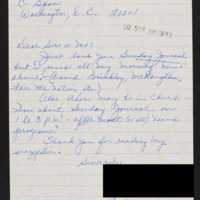 C-Span
Washington, D.C. 20001
Dear Sirs or Ms:
Just love your Sunday Journal
but I miss all my morning news
shows - (David Brinkley, McLaughlin,
Face the Nation etc)
Also others may be in Church
How about Sunday Journal over
1 to 3 p.m. - after most all news
programs?
Thank you for reading my
suggestion.
Sincerely